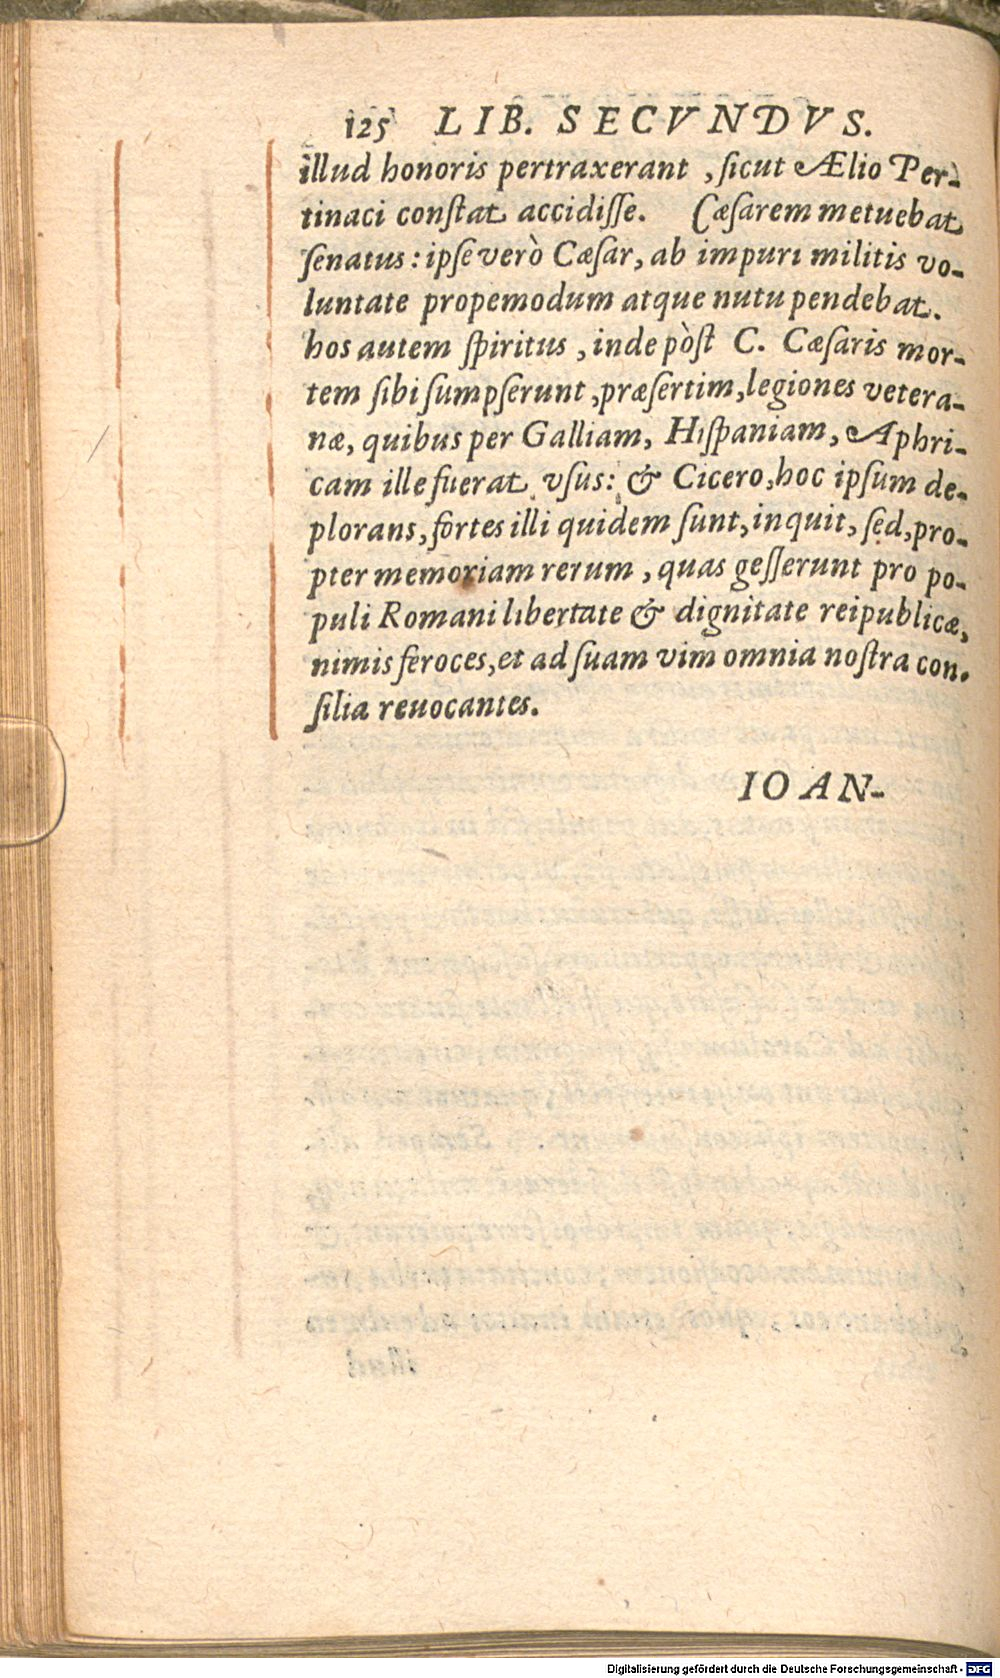 125 LIB. SECVNDVS.
illud honoris pertraxerant, sicut Ælio Per-
tinaci constat accidisse. Cæsarem metuebat
senatus: ipse verò Cæsar, ab impuri militis vo-
luntate propemodum atque nutu pendebat.
hos autem spiritus, inde pòst C. Cæsaris mor-
tem sibi sumpserunt, præsertim, legiones vetera-
næ, quibus per Galliam, Hispaniam, Aphri-
cam ille fuerat vsus: & Cicero, hoc ipsum de-
plorans, fortes illi quidem sunt, inquit, sed, pro-
pter memoriam rerum, quas gesserunt pro po-
puli Romani libertate & dignitate reipublicæ,
nimis feroces, et ad suam vim omnia nostra con-
silia reuocantes.
IOAN-
Digitalisierung gefördert durch die Deutsche Forschungsgemeinschaft - DFG